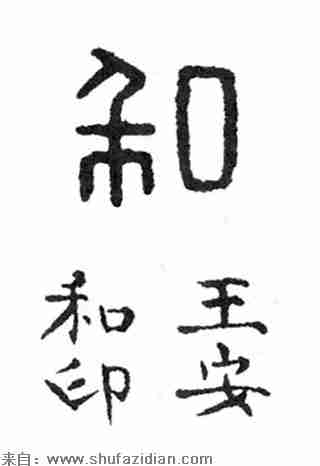 和
王安
和印
来自：www.shufazidian.com